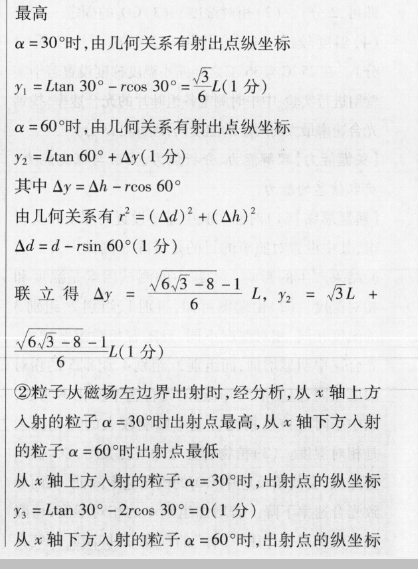 最高
α=30°时,由几何关系有射出点纵坐标
y₁=Ltan 30°-rcos 30°=√3/6 L(1 分)
α=60°时,由几何关系有射出点纵坐标
y₂=Ltan 60°+Δy(1 分)
其中 Δy=Δh-rcos 60°
由几何关系有 r²=(Δd)²+(Δh)²
Δd=d-rsin 60°(1 分)
联立得 Δy = (√(6√3-8)-1)/6 L, y₂ = √3L +
(√(6√3-8)-1)/6 L(1 分)
②粒子从磁场左边界出射时,经分析,从 x 轴上方
入射的粒子 α=30°时出射点最高,从 x 轴下方入射
的粒子 α=60°时出射点最低
从 x 轴上方入射的粒子 α=30°时,出射点的纵坐标
y₃=Ltan 30°-2rcos 30°=0(1 分)
从 x 轴下方入射的粒子 α=60°时,出射点的纵坐标